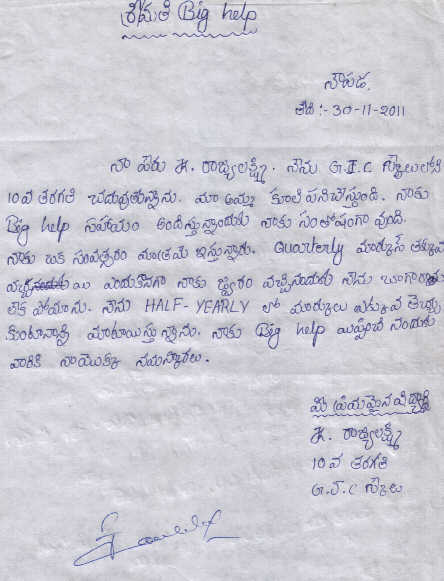 శ్రీమతి Big help
నౌపడ,
తేది :- 30-11-2011
నా పేరు K. రాజ్యలక్ష్మి. నేను G.J.C స్కూలులో
10వ తరగతి చదువుతున్నాను. మా అమ్మ కూలి పనిచేస్తుంది. నాకు
Big help సహాయం అందిస్తున్నందుకు నాకు సంతోషంగా వుంది.
నాకు ఒక సంవత్సరం మాత్రమే ఇస్తున్నారు. Quarterly మార్కుస్ తక్కువ
ఎందుకనగా నాకు జ్వరం వచ్చినందుకు నేను బాగా
లేక పోయాను. నేను HALF-YEARLY లో మార్కులు ఎక్కువ తెచ్చు
కుంటానన్ని మాటఇస్తున్నాను. నాకు Big help ఇప్పించి నందుకు
వారికి నాయొక్క నమస్కారలు.
మీ ప్రియమైన విద్యార్థి
K. రాజ్యలక్ష్మి
10 వ తరగతి
G.J.C స్కూలు